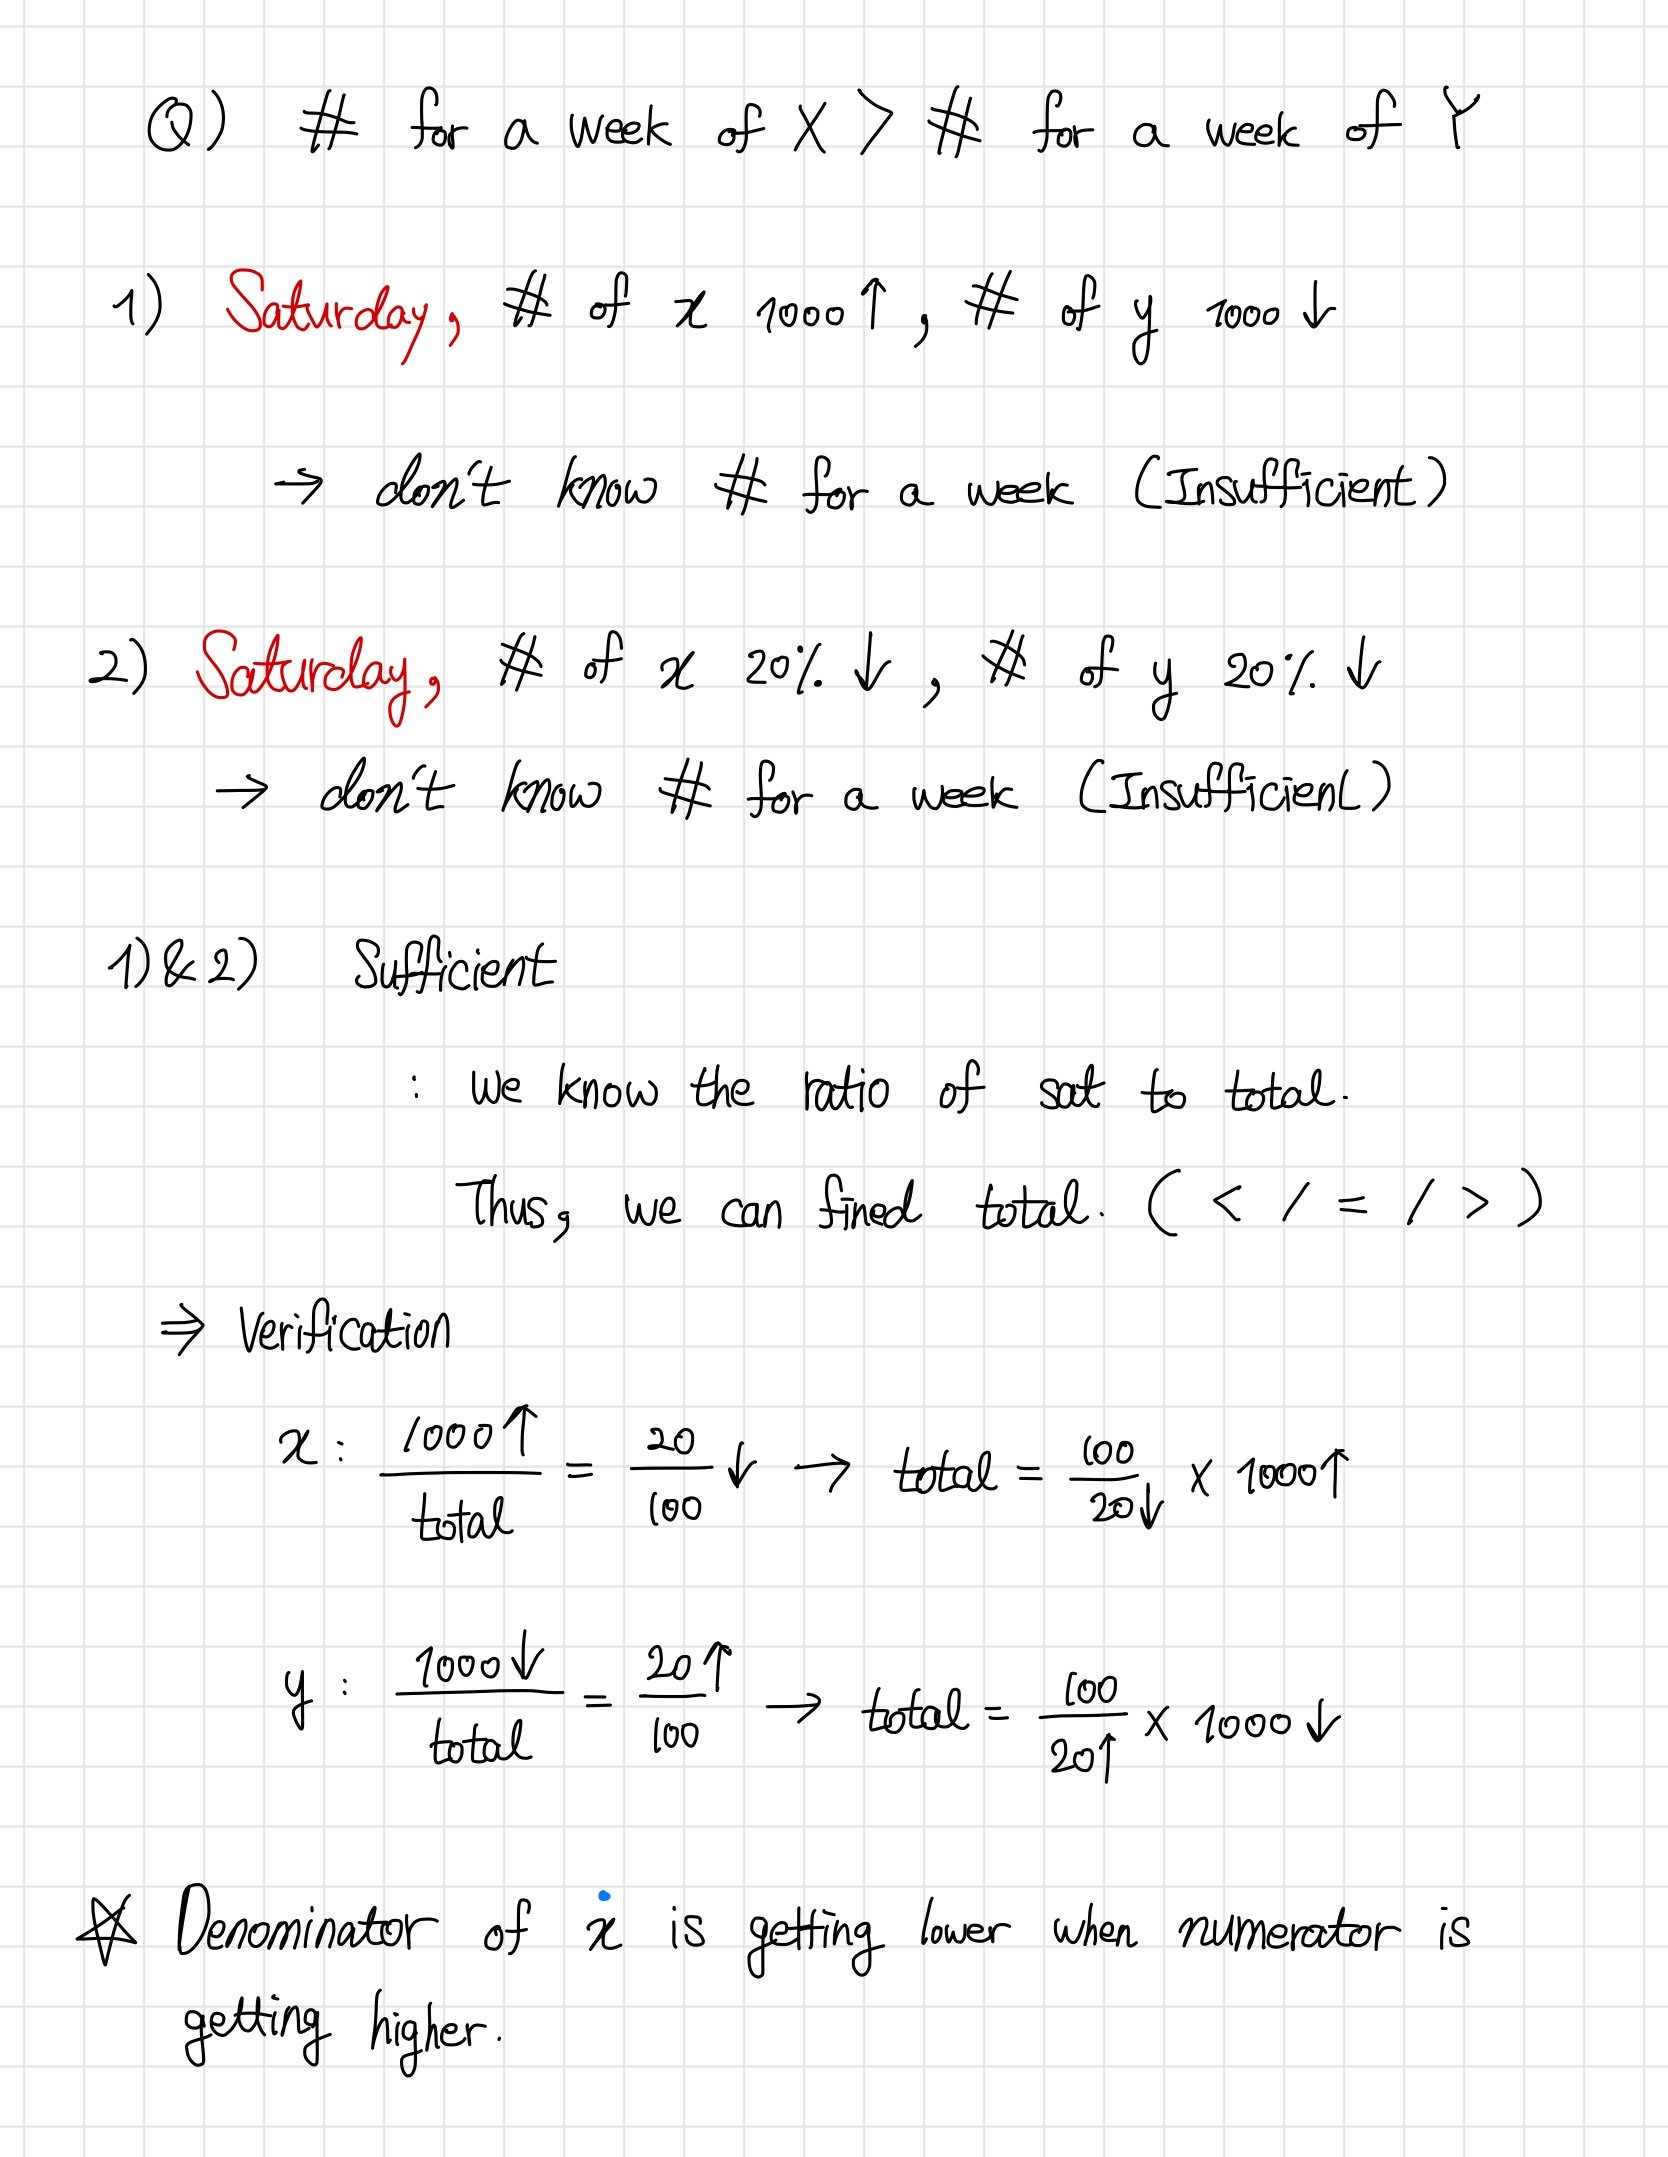 Q) # for a week of X > # for a week of Y
1) Saturday, # of x 1000↑, # of y 1000↓
→ don't know # for a week (Insufficient)
2) Saturday, # of x 20% ↓, # of y 20% ↓
→ don't know # for a week (Insufficient)
1)&2) Sufficient
: we know the ratio of sat to total.
Thus, we can fined total. ( < / = / > )
⇒ Verification
x: 1000↑/total = 20/100 ↓ → total = 100/20↓ × 1000↑
y: 1000↓/total = 20↑/100 → total = 100/20↑ × 1000↓
☆ Denominator of x is getting lower when numerator is
getting higher.